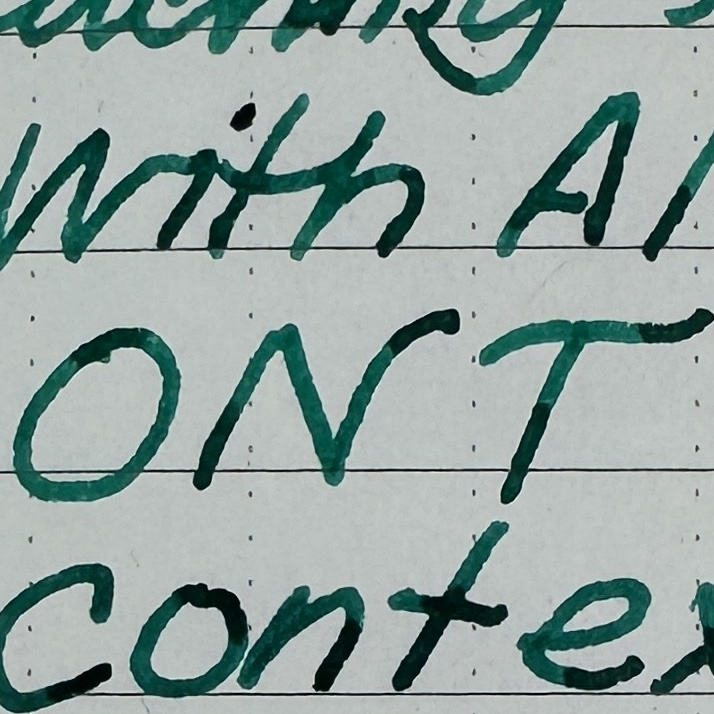 with AI
ONT
contex